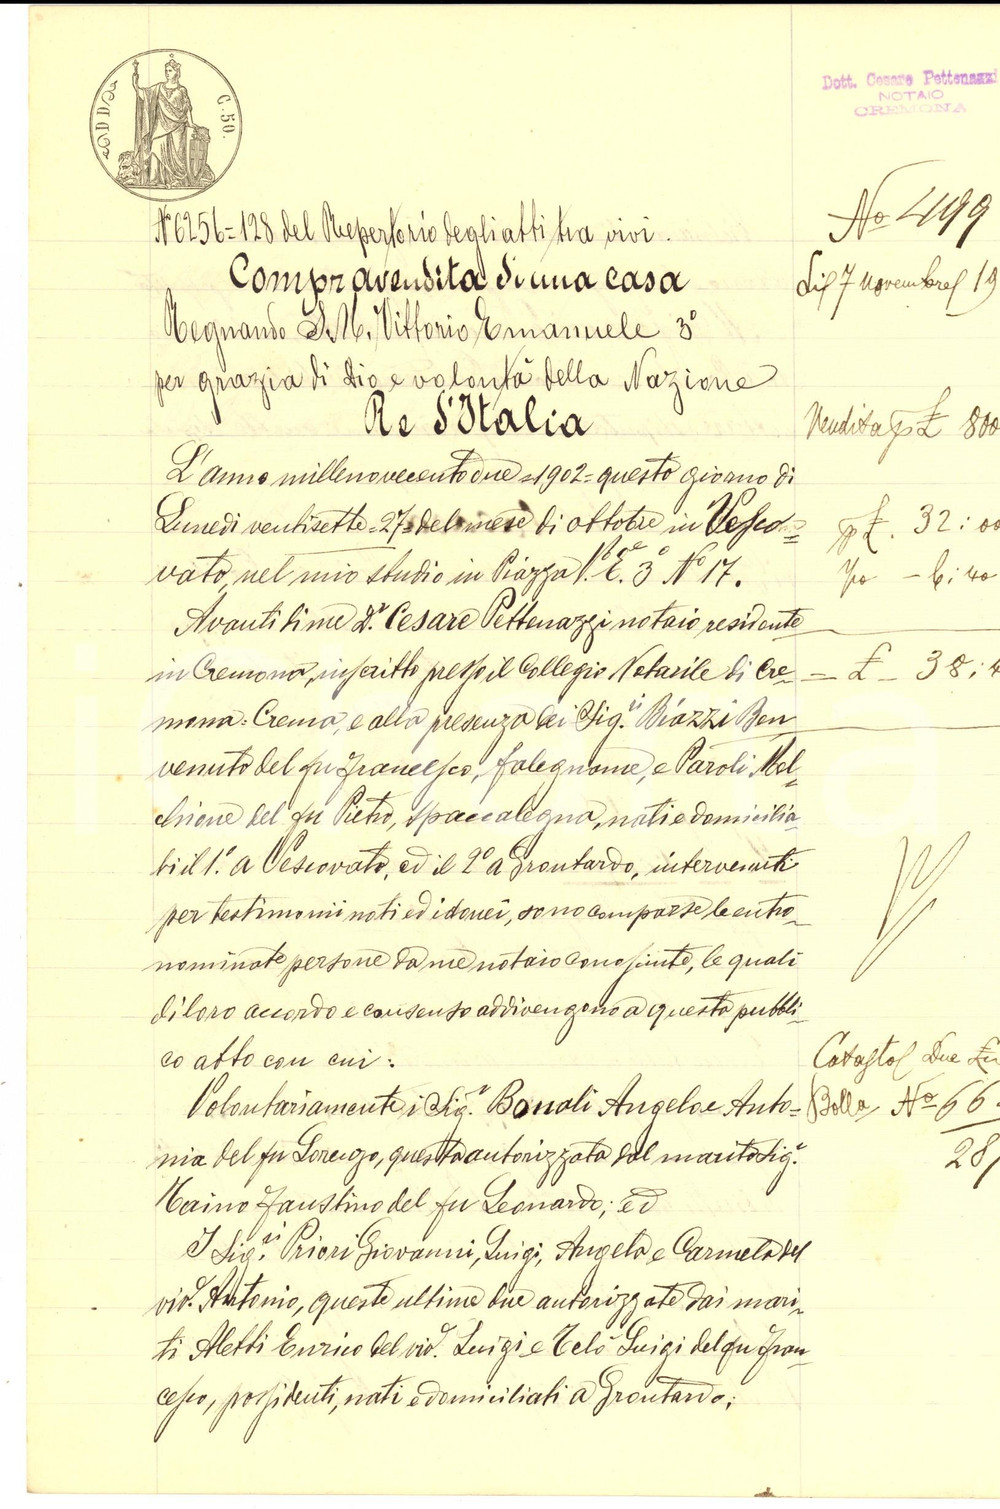 C. 50.
Dott. Cesare Pettenazzi
NOTAIO
CREMONA
N° 6256=128 del Repertorio degli atti tra vivi.
Compravendita di una casa
Regnando S. M. Vittorio Emanuele 3°
per grazia di Dio e volontà della Nazione
Re d'Italia
L'anno millenovecentodue =1902= questo giorno di
Lunedì ventisette =27= del mese di ottobre in Vesco=
vato, nel mio studio in Piazza V. E. 3° N° 17.
Avanti di me D.r Cesare Pettenazzi notaio residente
in Cremona, inscritto presso il Collegio Notarile di Cre-
mona=Crema, e alla presenza dei Sig.ri Biazzi Ben
venuto del fu Francesco, falegname, e Paroli Mel-
chiorre del fu Pietro, spaccalegna, nati e domicilia-
ti il 1.° a Vescovato, ed il 2° a Grontardo, intervenuti
per testimonii noti ed idonei, sono comparse le entro-
nominate persone da me notaio conosciute, le quali
di loro accordo e consenso addivengono a questo pubbli-
co atto con cui:
Volontariamente i Sig.ri Bonali Angelo e Anto=
nia del fu Lorenzo, questa autorizzata dal marito Sig.r
Maino Faustino del fu Leonardo; ed
I Sig.ri Priori Giovanni, Luigi, Angela e Carmela del
viv.e Antonio, queste ultime due autorizzate dai mari-
ti Aletti Enrico del viv.e Luigi e Telò Luigi del fu Fran-
cesco, possidenti, nati e domiciliati a Grontardo;
N° 499
Li 7 novembre 19
Vendita p £ 800
p £. 32:00
- 6:40
= £ - 38:4
Catasto Due
Bolla N° 66.
28